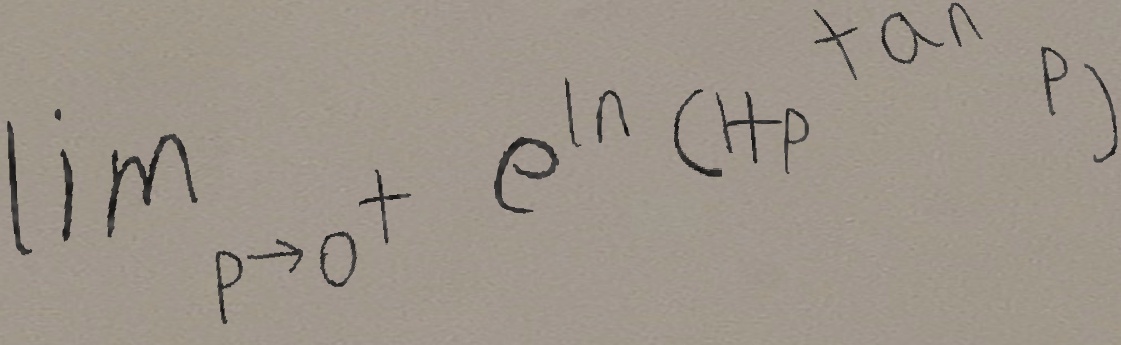 \lim_{p \to 0^+} e^{\ln (1+p^{\tan p})}